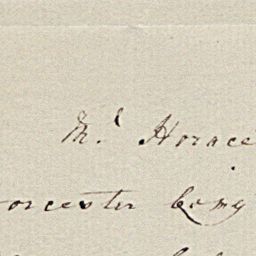 Mr. Horace
orcester Comy